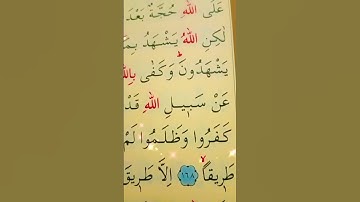 عَلَى اللّٰهِ حُجَّةٌ بَعْدَ
لٰكِنِ اللّٰهُ يَشْهَدُ بِمَٓا
يَشْهَدُونَ وَكَفٰى بِاللّٰهِ
عَنْ سَبٖيلِ اللّٰهِ قَدْ
كَفَرُوا وَظَلَمُوا لَمْ
طَرٖيقاًۙ ﴿١٦٨﴾ اِلَّا طَرٖيقَ